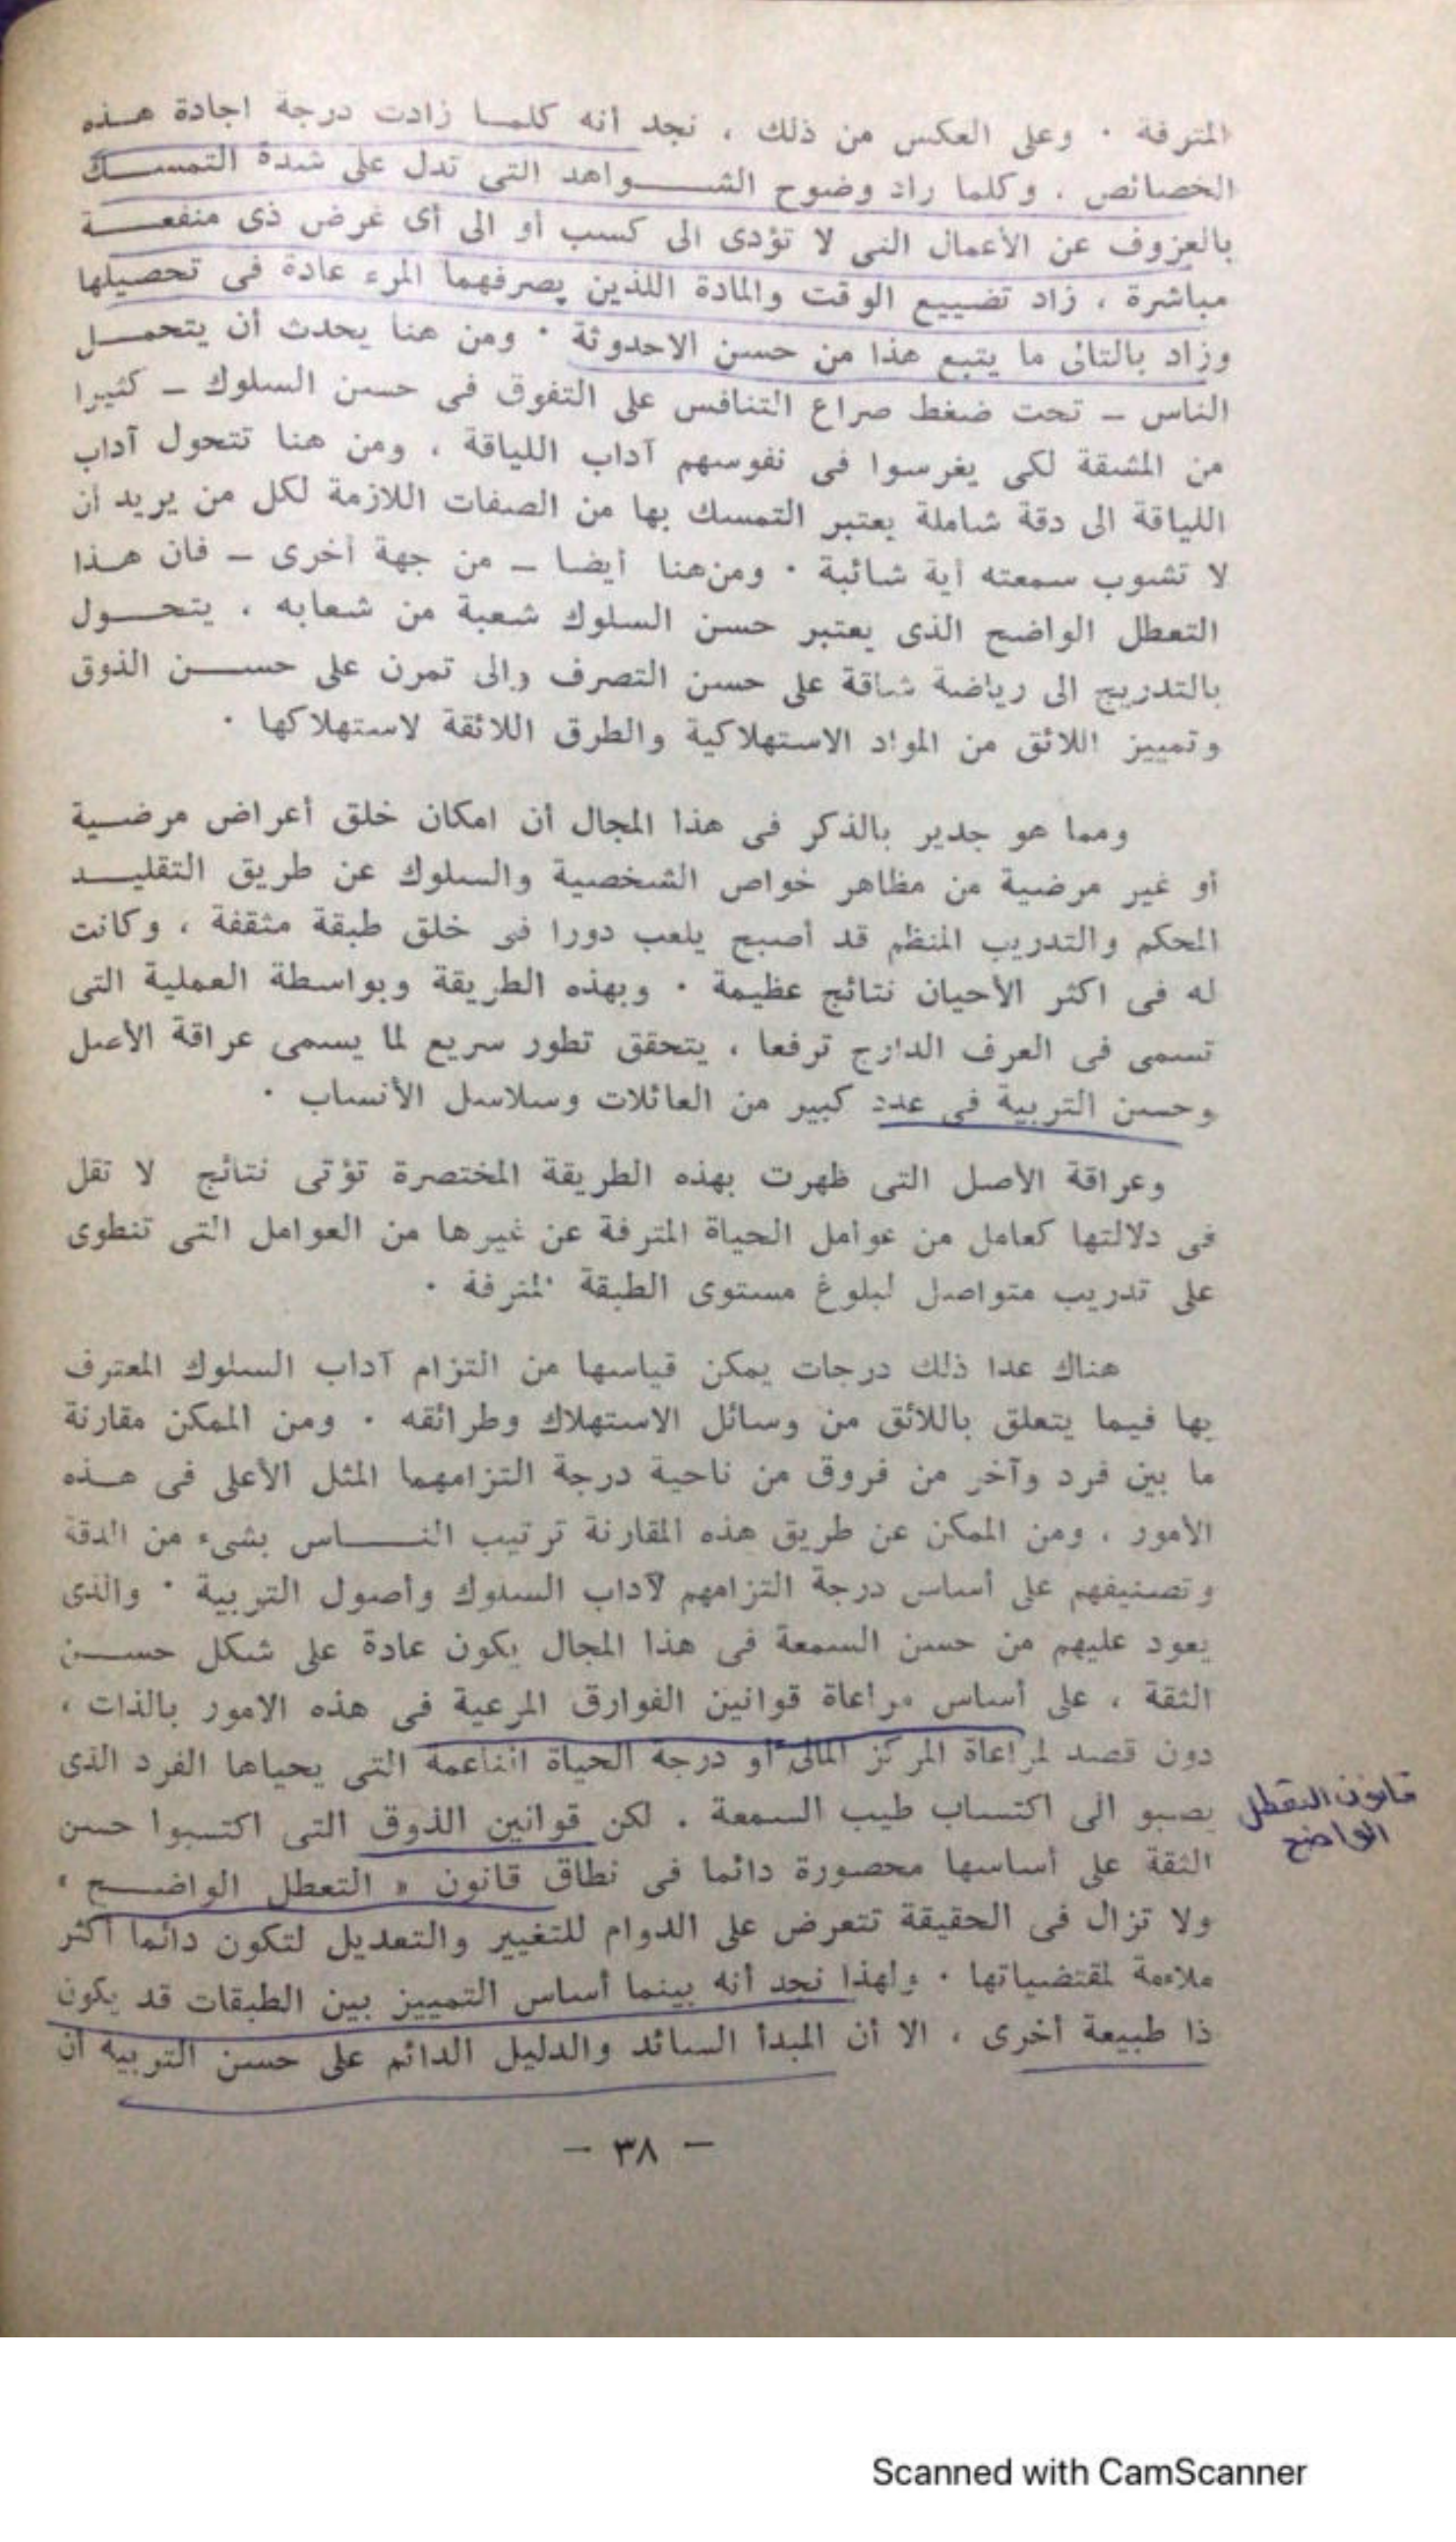 المترفة . وعلى العكس من ذلك ، نجد أنه كلمـا زادت درجة اجادة هـذه
الخصائص ، وكلما زاد وضوح الشــواهد التى تدل على شدة التمسـك
بالعزوف عن الأعمال التى لا تؤدى الى كسب أو الى أى غرض ذى منفعـة
مباشرة ، زاد تضييع الوقت والمادة اللذين يصرفهما المرء عادة فى تحصيلها
وزاد بالتالى ما يتبع هذا من حسن الاحدوثة . ومن هنا يحدث أن يتحمـل
الناس – تحت ضغط صراع التنافس على التفوق فى حسن السلوك – كثيرا
من المشقة لكى يغرسوا فى نفوسهم آداب اللياقة ، ومن هنا تتحول آداب
اللياقة الى دقة شاملة يعتبر التمسك بها من الصفات اللازمة لكل من يريد أن
لا تشوب سمعته أية شائبة . ومن هنا أيضا – من جهة أخرى – فان هـذا
التعطل الواضح الذى يعتبر حسن السلوك شعبة من شعابه ، يتحــول
بالتدريج الى رياضة شاقة على حسن التصرف والى تمرن على حســن الذوق
وتمييز اللائق من المواد الاستهلاكية والطرق اللائقة لاستهلاكها .
ومما هو جدير بالذكر فى هذا المجال أن امكان خلق أعراض مرضـية
أو غير مرضية من مظاهر خواص الشخصية والسلوك عن طريق التقليـد
المحكم والتدريب المنظم قد أصبح يلعب دورا فى خلق طبقة مثقفة ، وكانت
له فى اكثر الأحيان نتائج عظيمة . وبهذه الطريقة وبواسطة العملية التى
تسمى فى العرف الدارج ترفعا ، يتحقق تطور سريع لما يسمى عراقة الأصل
وحسن التربية فى عدد كبير من العائلات وسلاسل الأنساب .
وعراقة الأصل التى ظهرت بهذه الطريقة المختصرة تؤتى نتائج لا تقل
فى دلالتها كعامل من عوامل الحياة المترفة عن غيرها من العوامل التى تنطوى
على تدريب متواصل لبلوغ مستوى الطبقة المترفة .
هناك عدا ذلك درجات يمكن قياسها من التزام آداب السلوك المعترف
بها فيما يتعلق باللائق من وسائل الاستهلاك وطرائقه . ومن الممكن مقارنة
ما بين فرد وآخر من فروق من ناحية درجة التزامهما المثل الأعلى فى هـذه
الأمور ، ومن الممكن عن طريق هذه المقارنة ترتيب النــاس بشىء من الدقة
وتصنيفهم على أساس درجة التزامهم لآداب السلوك وأصول التربية . والذى
يعود عليهم من حسن السمعة فى هذا المجال يكون عادة على شكل حســن
الثقة ، على أساس مراعاة قوانين الفوارق المرعية فى هذه الامور بالذات ،
دون قصد لمراعاة المركز المالى أو درجة الحياة الناعمة التى يحياها الفرد الذى
يصبو الى اكتساب طيب السمعة . لكن قوانين الذوق التى اكتسبوا حسن
قانون التعطل
الواضح
الثقة على أساسها محصورة دائما فى نطاق قانون « التعطل الواضــح »
ولا تزال فى الحقيقة تتعرض على الدوام للتغيير والتعديل لتكون دائما أكثر
ملاءمة لمقتضياتها . ولهذا نجد أنه بينما أساس التمييز بين الطبقات قد يكون
ذا طبيعة أخرى ، الا أن المبدأ السائد والدليل الدائم على حسن التربية أن
– ٣٨ –
Scanned with CamScanner